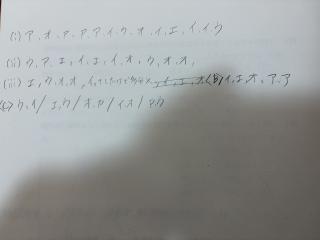 (i) ア、オ、ア、ア、ア、イ、ウ、オ、イ、エ、イ、イ、ウ
(ii) ウ、ア、エ、イ、エ、イ、オ、ウ、オ、オ、
(iii) エ、ウ、オ、オ、イ、エ、オ、ア、ア
ウ、イ/エ、ウ/オ、ア/イ、オ/ア、ウ